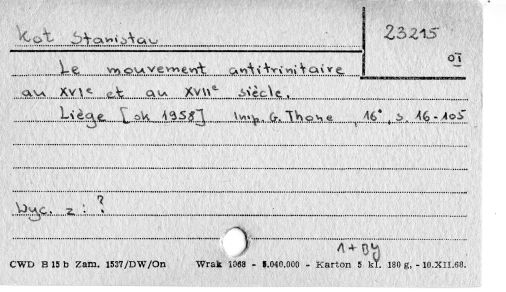 Kot Stanisław
23215
oī
Le mouvement antitrinitaire
au XVIe et au XVIIe siècle.
Liège [ok 1958] Imp. G. Thone, 16°, s. 16-105
Wyc. z : ?
1+By
CWD B 15 b Zam. 1537/DW/On Wrak 1068 - 5.040.000 - Karton 5 kl. 180 g. - 10.XII.68.